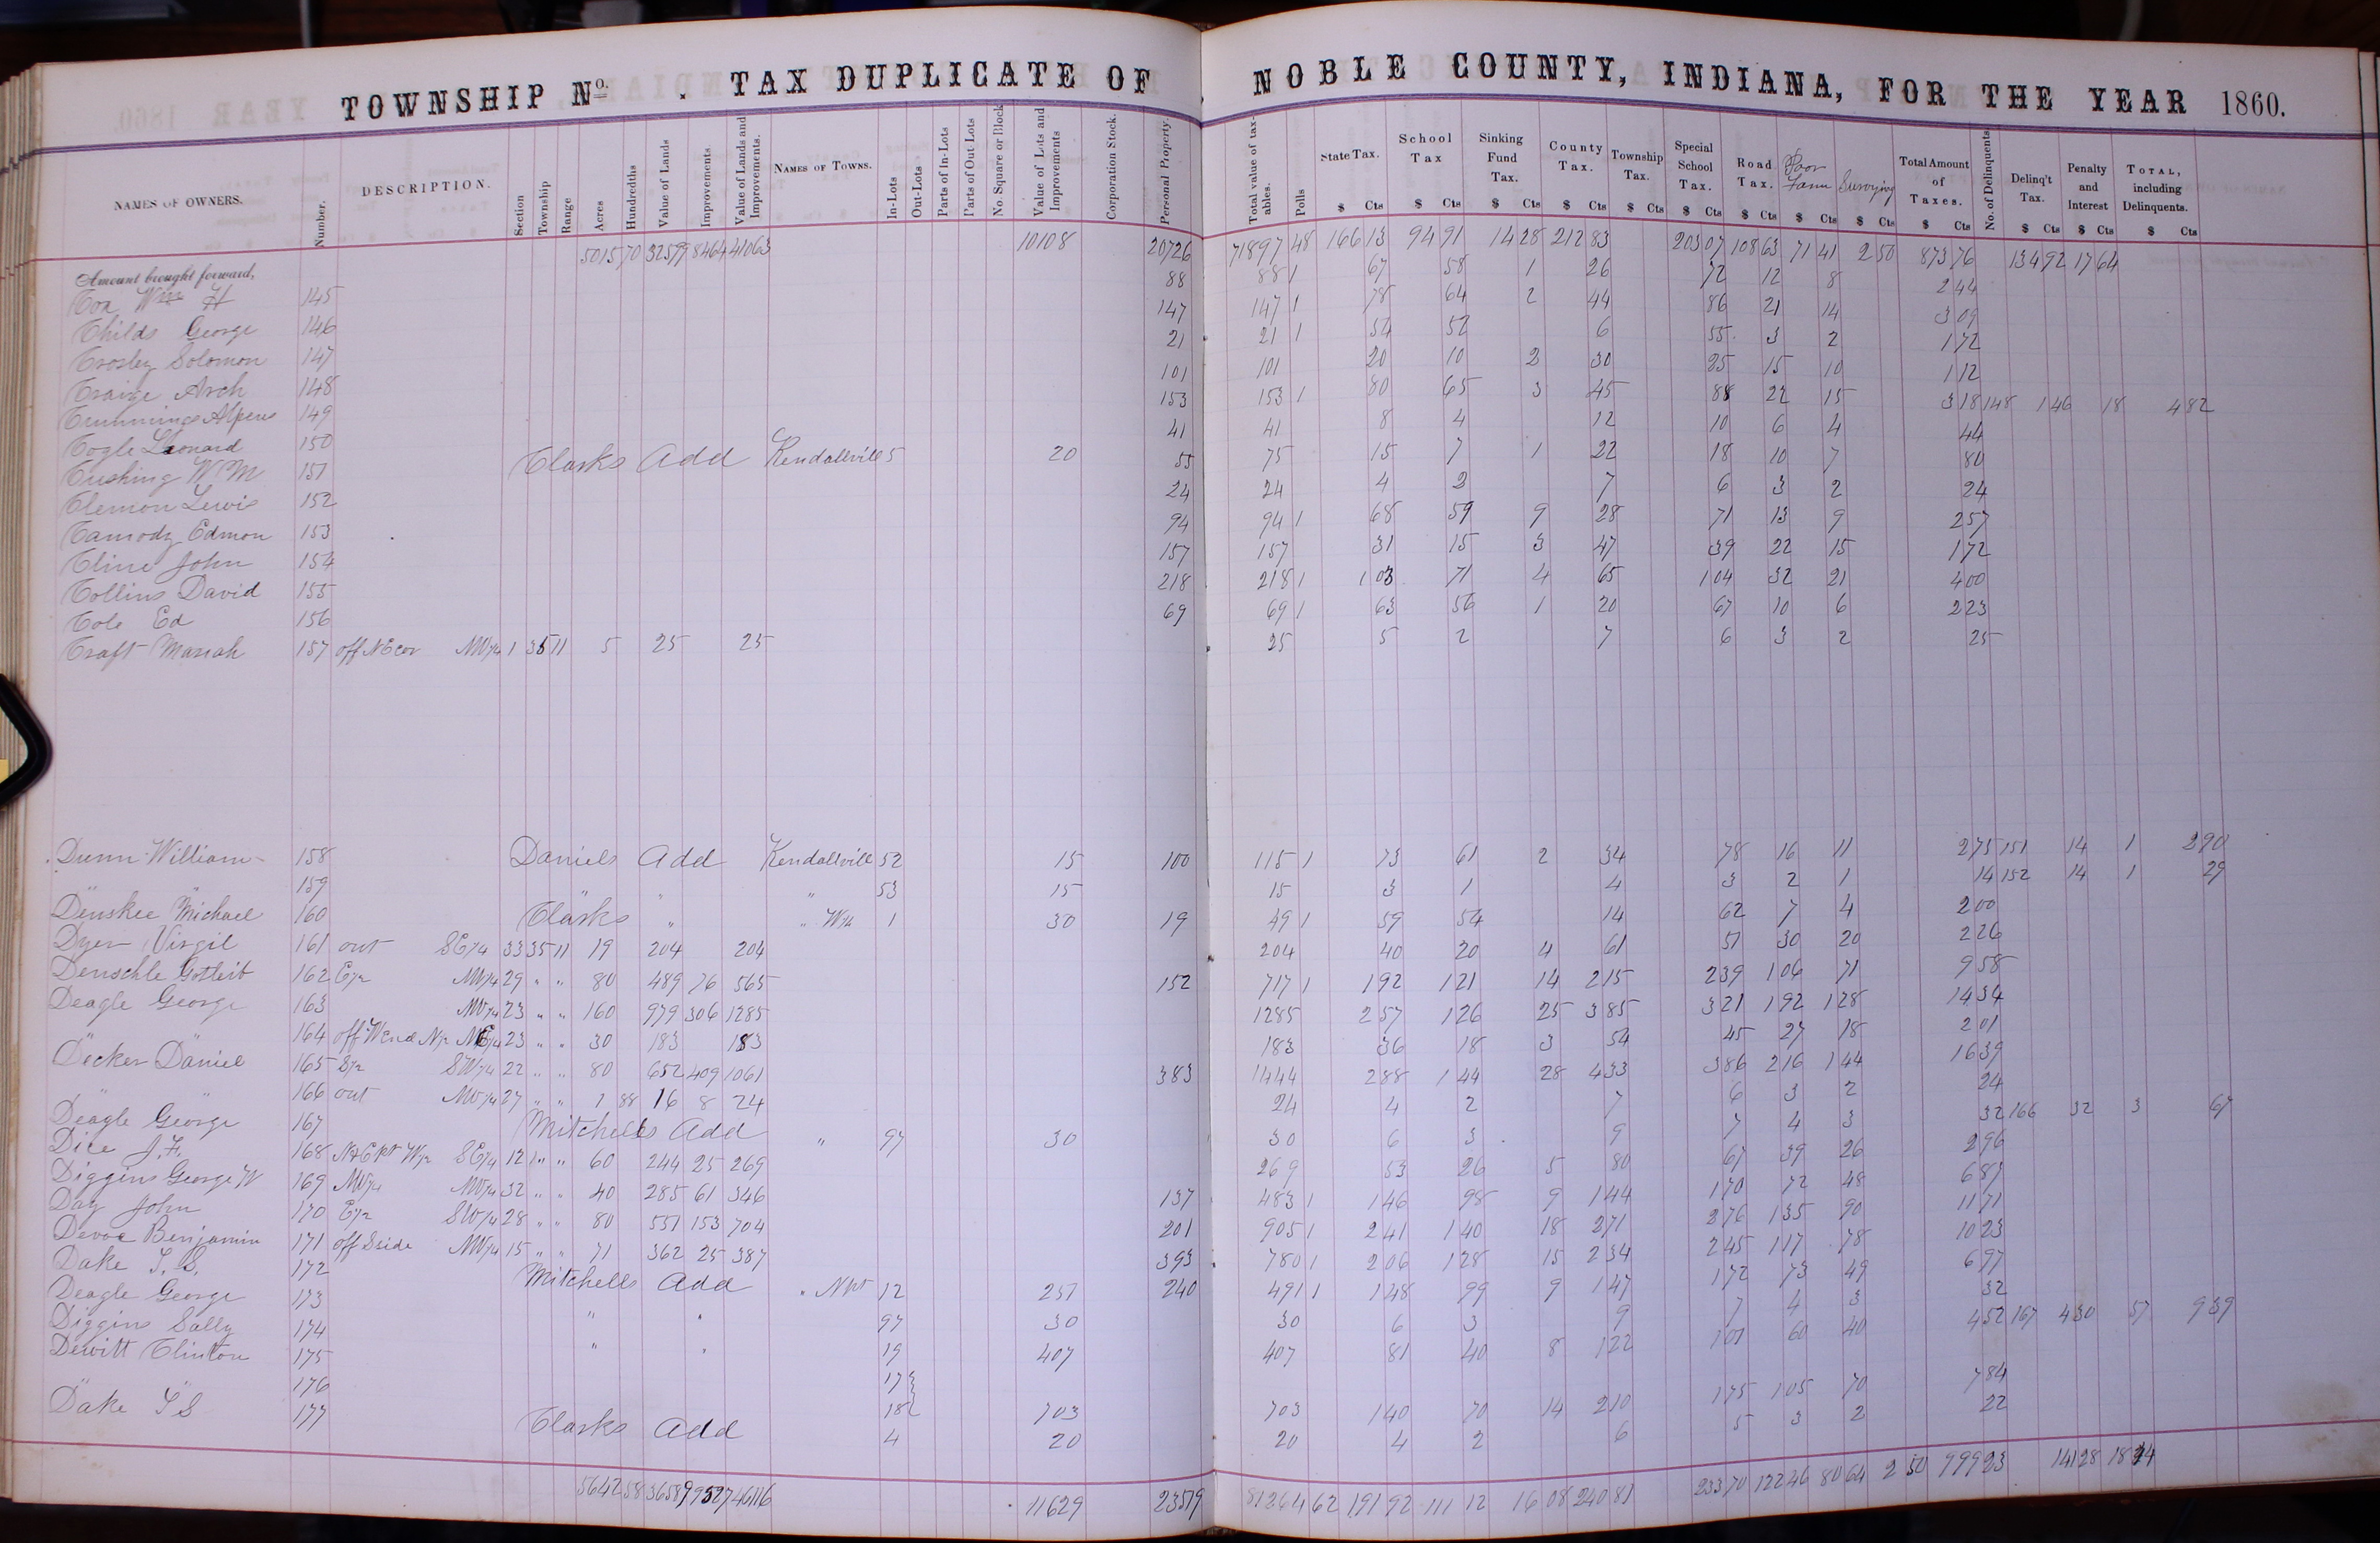 TOWNSHIP No. . TAX DUPLICATE OF NOBLE COUNTY, INDIANA, FOR THE YEAR 1860.
NAMES OF OWNERS. Number. DESCRIPTION. Section Township Range Acres Hundredths Value of Lands Improvements. Value of Lands and Improvements. NAMES OF TOWNS. In-Lots Out-Lots Parts of In-Lots Parts of Out Lots No. Square or Block Value of Lots and Improvements Corporation Stock. Personal Property. Total value of taxables. Polls State Tax. School Tax Sinking Fund Tax. County Tax. Township Tax. Special School Tax. Road Tax. Poor Farm Surveying Total Amount of Taxes. No. of Delinquents. Delinq't Tax. Penalty and Interest TOTAL, including Delinquents.
$ Cts $ Cts $ Cts $ Cts $ Cts $ Cts $ Cts $ Cts $ Cts $ Cts $ Cts $ Cts $ Cts
Amount brought forward, 5015 70 32579 8464 41063 10108 20726 71897 48 166 13 94 91 14 28 212 83 203 07 108 63 71 41 2 50 873 76 134 92 17 64
Cox Wm H 145 88 88 1 67 58 1 26 72 12 8 2 44
Childs George 146 147 147 1 78 64 2 44 86 21 14 3 09
Crosley Solomon 147 21 21 1 54 52 6 55 3 2 1 72
Craige Arch 148 101 101 20 10 2 30 25 15 10 1 12
Cummings Alpeus 149 153 153 1 80 65 3 45 88 22 15 3 18 148 1 46 18 4 82
Cogle Leonard 150 41 41 8 4 12 10 6 4 44
Cushing W M 151 Clarks Add Kendallville 5 20 55 75 15 7 1 22 18 10 7 80
Clemon Lewis 152 24 24 4 2 7 6 3 2 24
Camody Edmon 153 94 94 1 68 59 9 28 71 13 9 2 57
Cline John 154 157 157 31 15 3 47 39 22 15 1 72
Collins David 155 218 218 1 1 03 71 4 65 1 04 32 21 4 00
Cole Ed 156 69 69 1 63 56 1 20 67 10 6 2 23
Craft Mariah 157 off NE cor NW 1/4 1 35 11 5 25 25 25 5 2 7 6 3 2 25
Dunn William 158 Daniels Add Kendallville 52 15 100 115 1 73 61 2 34 78 16 11 2 75 151 14 1 2 90
" " 159 " " " 53 15 15 3 1 4 3 2 1 14 152 14 1 29
Denskee Michael 160 Clarks " " W 1/2 1 30 19 49 1 59 54 14 62 7 4 2 00
Dyer Virgil 161 out SE 1/4 33 35 11 19 204 204 204 40 20 4 61 51 30 20 2 26
Denschle Gotleib 162 E 1/2 NW 1/4 29 " " 80 489 76 565 152 717 1 1 92 1 21 14 2 15 2 39 1 06 71 9 58
Deagle George 163 NW 1/4 23 " " 160 979 306 1285 1285 2 57 1 26 25 3 85 3 21 1 92 1 28 14 34
" " 164 off W End N 1/2 NE 1/4 23 " " 30 183 183 183 36 18 3 54 45 27 18 2 01
Decker Daniel 165 S 1/2 SW 1/4 22 " " 80 652 409 1061 383 1444 2 88 1 44 28 4 33 3 86 2 16 1 44 16 39
" " 166 out NW 1/4 27 " " 1 88 16 8 24 24 4 2 7 6 3 2 24
Deagle George 167 Mitchells Add " 97 30 30 6 3 9 7 4 3 32 166 32 3 67
Dice J. F. 168 N & E pt W 1/2 SE 1/4 12 " " 60 244 25 269 269 53 26 5 80 67 39 26 2 96
Diggins George W 169 NW 1/4 NW 1/4 32 " " 40 285 61 346 137 483 1 1 46 98 9 1 44 1 70 72 48 6 87
Day John 170 E 1/2 SW 1/4 28 " " 80 551 153 704 201 905 1 2 41 1 40 18 2 71 2 76 1 35 90 11 71
Devoe Benjamin 171 off S side NW 1/4 15 " " 71 362 25 387 393 780 1 2 06 1 28 15 2 34 2 45 1 17 78 10 23
Dake T. S. 172 Mitchells Add " N pt 12 251 240 491 1 1 48 99 9 1 47 1 72 73 49 6 97
Deagle George 173 " " 97 30 30 6 3 9 7 4 3 32
Diggins Sally 174 " " 19 407 407 81 40 8 1 22 1 01 60 40 4 52 167 4 30 57 9 39
Dewitt Clinton 175 17
" " 176 18 703 703 1 40 70 14 2 10 1 75 1 05 70 7 84
Dake T S 177 Clarks Add 4 20 20 4 2 6 5 3 2 22
5642 58 36589 9527 46116 11629 23519 81264 62 191 92 111 12 16 08 240 81 233 70 122 46 80 64 2 50 999 23 141 28 18 44